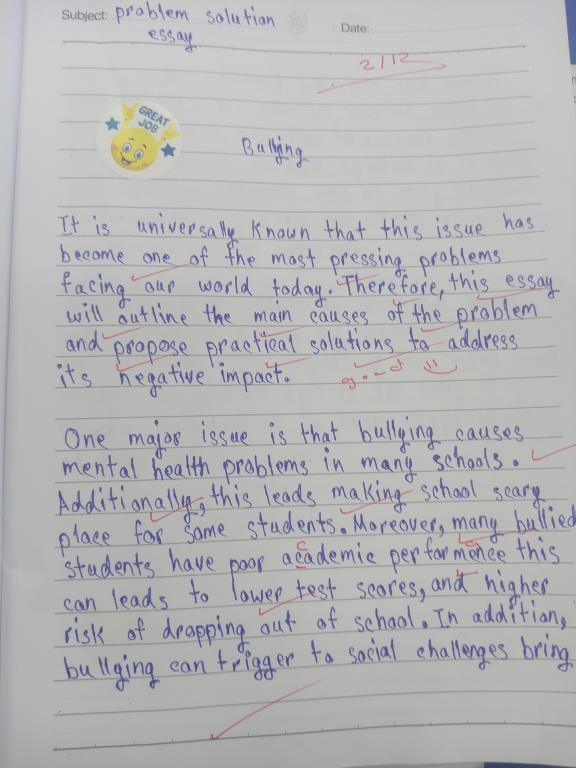 Subject: problem solution
essay
Date:
2/12
GREAT
JOB
Bullying
It is universally known that this issue has
become one of the most pressing problems
facing our world today. Therefore, this essay
will outline the main causes of the problem
and propose practical solutions to address
its negative impact.
good
One major issue is that bullying causes
mental health problems in many schools.
Additionally, this leads making school scary
place for some students. Moreover, many bullied
students have poor academic performence this
can leads to lower test scores, and higher
risk of dropping out of school. In addition,
bullying can trigger to social challenges bring